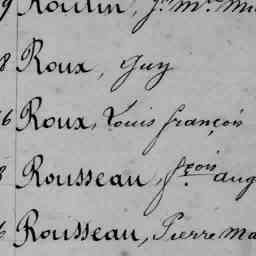 9 Roulin, Jn Mie
8 Roux, Guy
6 Roux, Louis françois
8 Rousseau, fçois aug
6 Rousseau, Pierre Ma